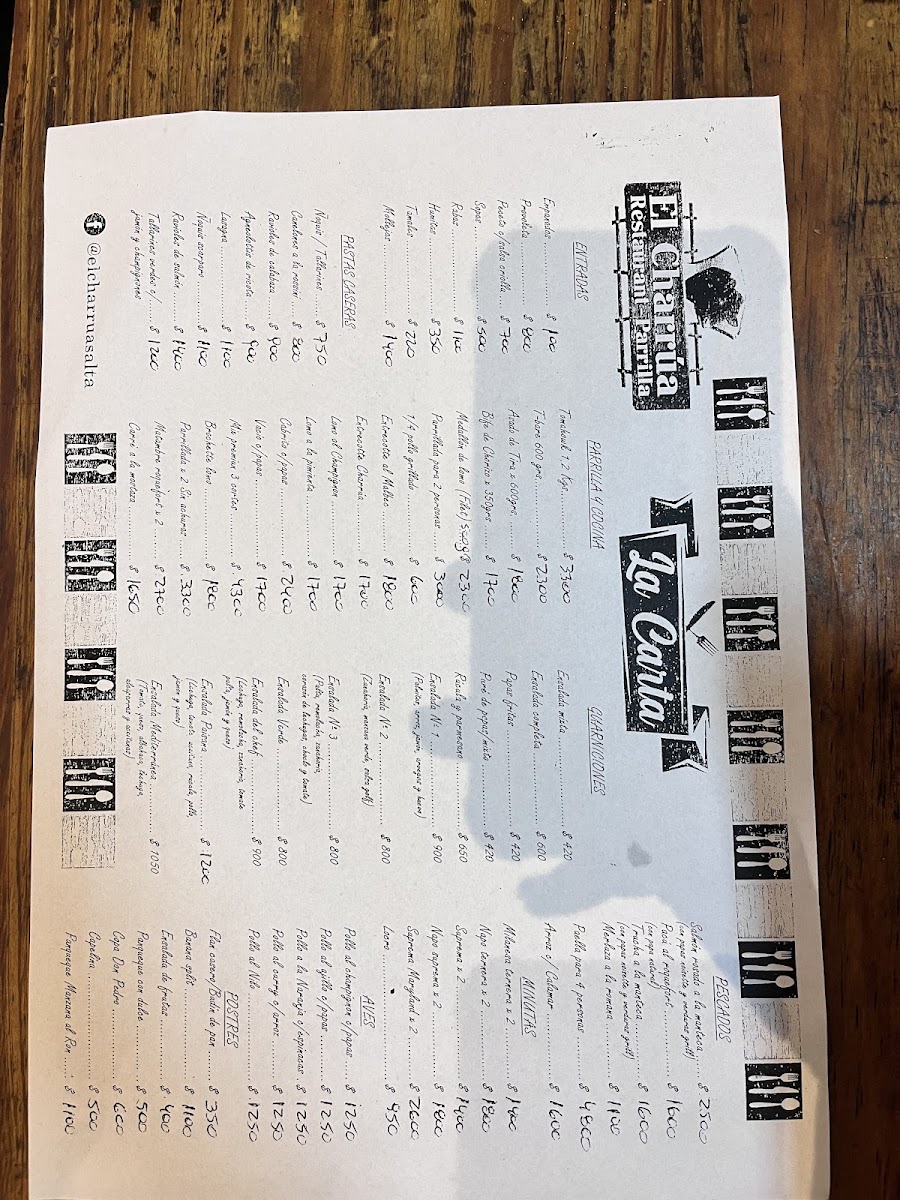 El Charrúa
Restaurant Parrilla
La Carta
ENTRADAS
Empanadas ........ $ 100
Provoleta ........ $ 800
Peceto c/salsa criolla .... $ 700
Sopas ........ $ 500
Rabas ........ $ 1100
Humitas ........ $ 350
Tamales ........ $ 220
Mollejas ........ $ 1400
PASTAS CASERAS
Ñoquis / Tallarines ........ $ 750
Canelones a la rossini ........ $ 800
Ravioles de calabaza ........ $ 900
Agnolottis de ricota ........ $ 900
Lasagna ........ $ 1100
Ñoquis scarparo ........ $ 1100
Ravioles de salmón ........ $ 1400
Tallarines verdes c/ ........ $ 1200
jamón y champignones
@elcharruasalta
PARRILLA Y COCINA
Tomahowk 1.2 kgs. ........ $ 3300
T-bone 600 grs. ........ $ 2300
Asado de Tira x 600grs. ........ $ 1800
Bife de Chorizo x 350grs ........ $ 1700
Medallón de lomo (Filet) 500g $ 2300
Parrillada para 2 personas $ 3000
1/4 pollo grillado ........ $ 600
Entrecotte al Malbec ........ $ 1800
Entrecotte Charrúa ........ $ 1700
Lomo al Champignon ........ $ 1700
Lomo a la pimienta ........ $ 1700
Cabrito c/papas ........ $ 2400
Vacío c/papas ........ $ 1700
Mix premium 3 cortes ........ $ 4300
Brochette lomo ........ $ 1800
Parrillada x 2 Sin achuras ........ $ 3300
Matambre roquefort x 2 ........ $ 2700
Carré a la mostaza ........ $ 1650
GUARNICIONES
Ensalada mixta ........ $ 420
Ensalada completa ........ $ 600
Papas fritas ........ $ 420
Puré de papas/mixto ........ $ 420
Rúcula y parmesano ........ $ 650
Ensalada Nº 1 ........ $ 900
(Palmitos, arroz, jamón, ananá y huevo)
Ensalada Nº 2 ........ $ 800
(Zanahoria, manzana verde, salsa golf)
Ensalada Nº 3 ........ $ 800
(Palta, remolacha, zanahoria,
corazón de lechugas, choclo y tomate)
Ensalada Verde ........ $ 800
Ensalada del chef ........ $ 900
(Lechuga, remolacha, zanahoria, tomate
palta, jamón y queso)
Ensalada Paisana ........ $ 1200
(Lechuga, tomate, aceitunas, rúcula, pollo
jamón y queso)
Ensalada Mediterránea ........ $ 1050
(Tomate, huevo, alcahuas, lechuga,
alcaparras y aceitunas)
PESCADOS
Salmón rosado a la manteca ........ $ 2500
(con papas noisette y verduras grill)
Pacú al roquefort ........ $ 1600
(con papa natural)
Trucha a la manteca ........ $ 1600
(con papas noisette y verduras grill)
Merluza a la romana ........ $ 1100
Paella para 4 personas ........ $ 4800
Arroz c/ Calamar ........ $ 1600
MINUTAS
Milanesa ternera x 2 ........ $ 1400
Napo ternera x 2 ........ $ 1800
Suprema x 2 ........ $ 1400
Napo suprema x 2 ........ $ 1800
Suprema Maryland x 2 ........ $ 2000
Lomo ........ $ 950
AVES
Pollo al champignon c/papas ........ $ 1250
Pollo al ajillo c/papas ........ $ 1250
Pollo a la Naranja c/espinacas ........ $ 1250
Pollo al curry c/arroz ........ $ 1250
Pollo al Nilo ........ $ 1250
POSTRES
Flan casero/Budín de pan ........ $ 350
Banana split ........ $ 1100
Ensalada de frutas ........ $ 400
Panqueque con dulce ........ $ 500
Copa Don Pedro ........ $ 600
Capelina ........ $ 500
Panqueque Manzana al Ron ........ $ 1100